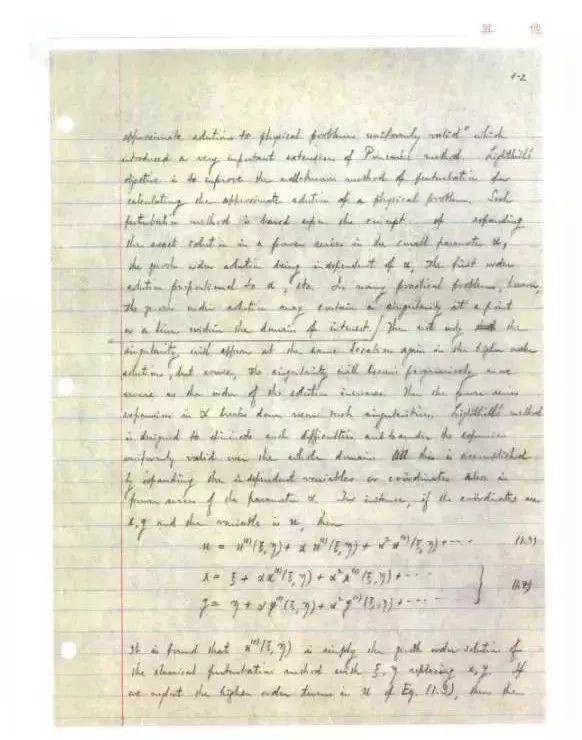 其 他
1-2
approximate solutions to physical problems uniformly valid" which
introduced a very important extension of Poincaré method. Lighthill's
objective is to improve the well-known method of perturbation for
calculating the approximate solution of a physical problem. Such
perturbation method is based upon the concept of expanding
the exact solution in a power series in the small parameter α,
the zeroth order solution being independent of α, the first order
solution proportional to α, etc. In many practical problems, however,
the zeroth order solution may contain a singularity at a point
or a line within the domain of interest. Then not only the
singularity will appear at the same location again in the higher order
solution, but worse, the singularity will become progressively more
severe as the order of the solution increases. Thus the power series
expansion in α breaks down near such singularities. Lighthill's method
is designed to eliminate such difficulties and to render the expansion
uniformly valid over the whole domain. All this is accomplished
by expanding the independent variables or coördinates also in
power series of the parameter α. For instance, if the coördinates are
x, y and the variable is u, then
u = u⁽⁰⁾(ξ, η) + α u⁽¹⁾(ξ, η) + α² u⁽²⁾(ξ, η) + ····
x = ξ + α x⁽¹⁾(ξ, η) + α² x⁽²⁾(ξ, η) + ···
y = η + α y⁽¹⁾(ξ, η) + α² y⁽²⁾(ξ, η) + ····
It is found that u⁽⁰⁾(ξ, η) is simply the zeroth order solution of
the classical perturbation method with ξ, η replacing x, y. If
we neglect the higher order terms in u of Eq. (1.3), then the